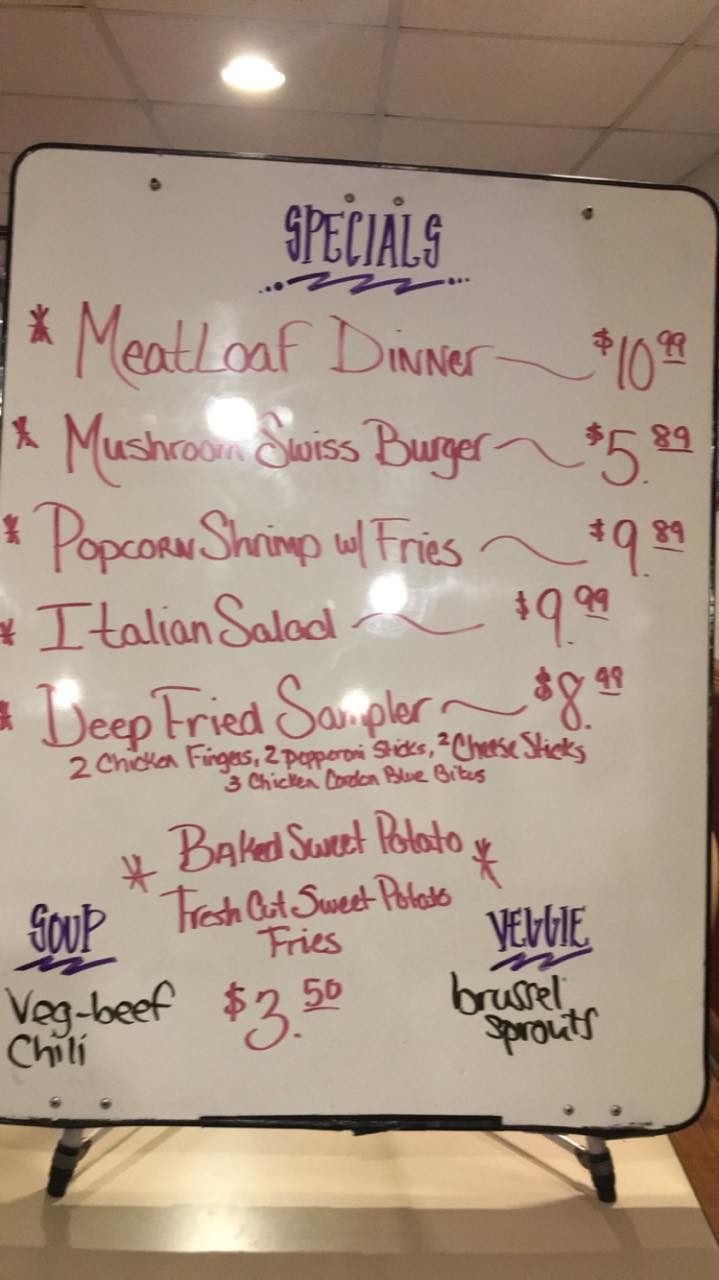 SPECIALS
* MeatLoaf Dinner $10.99
* Mushroom Swiss Burger $5.89
* Popcorn Shrimp w/ Fries $9.89
* Italian Salad $9.99
* Deep Fried Sampler $8.99
2 Chicken Fingers, 2 pepperoni Sticks, 2 Cheese Sticks
3 Chicken Cordon Blue Bites
* Baked Sweet Potato *
Fresh Cut Sweet Potato
Fries
$3.50
SOUP
Veg-beef
Chili
VEGGIE
brussel
sprouts